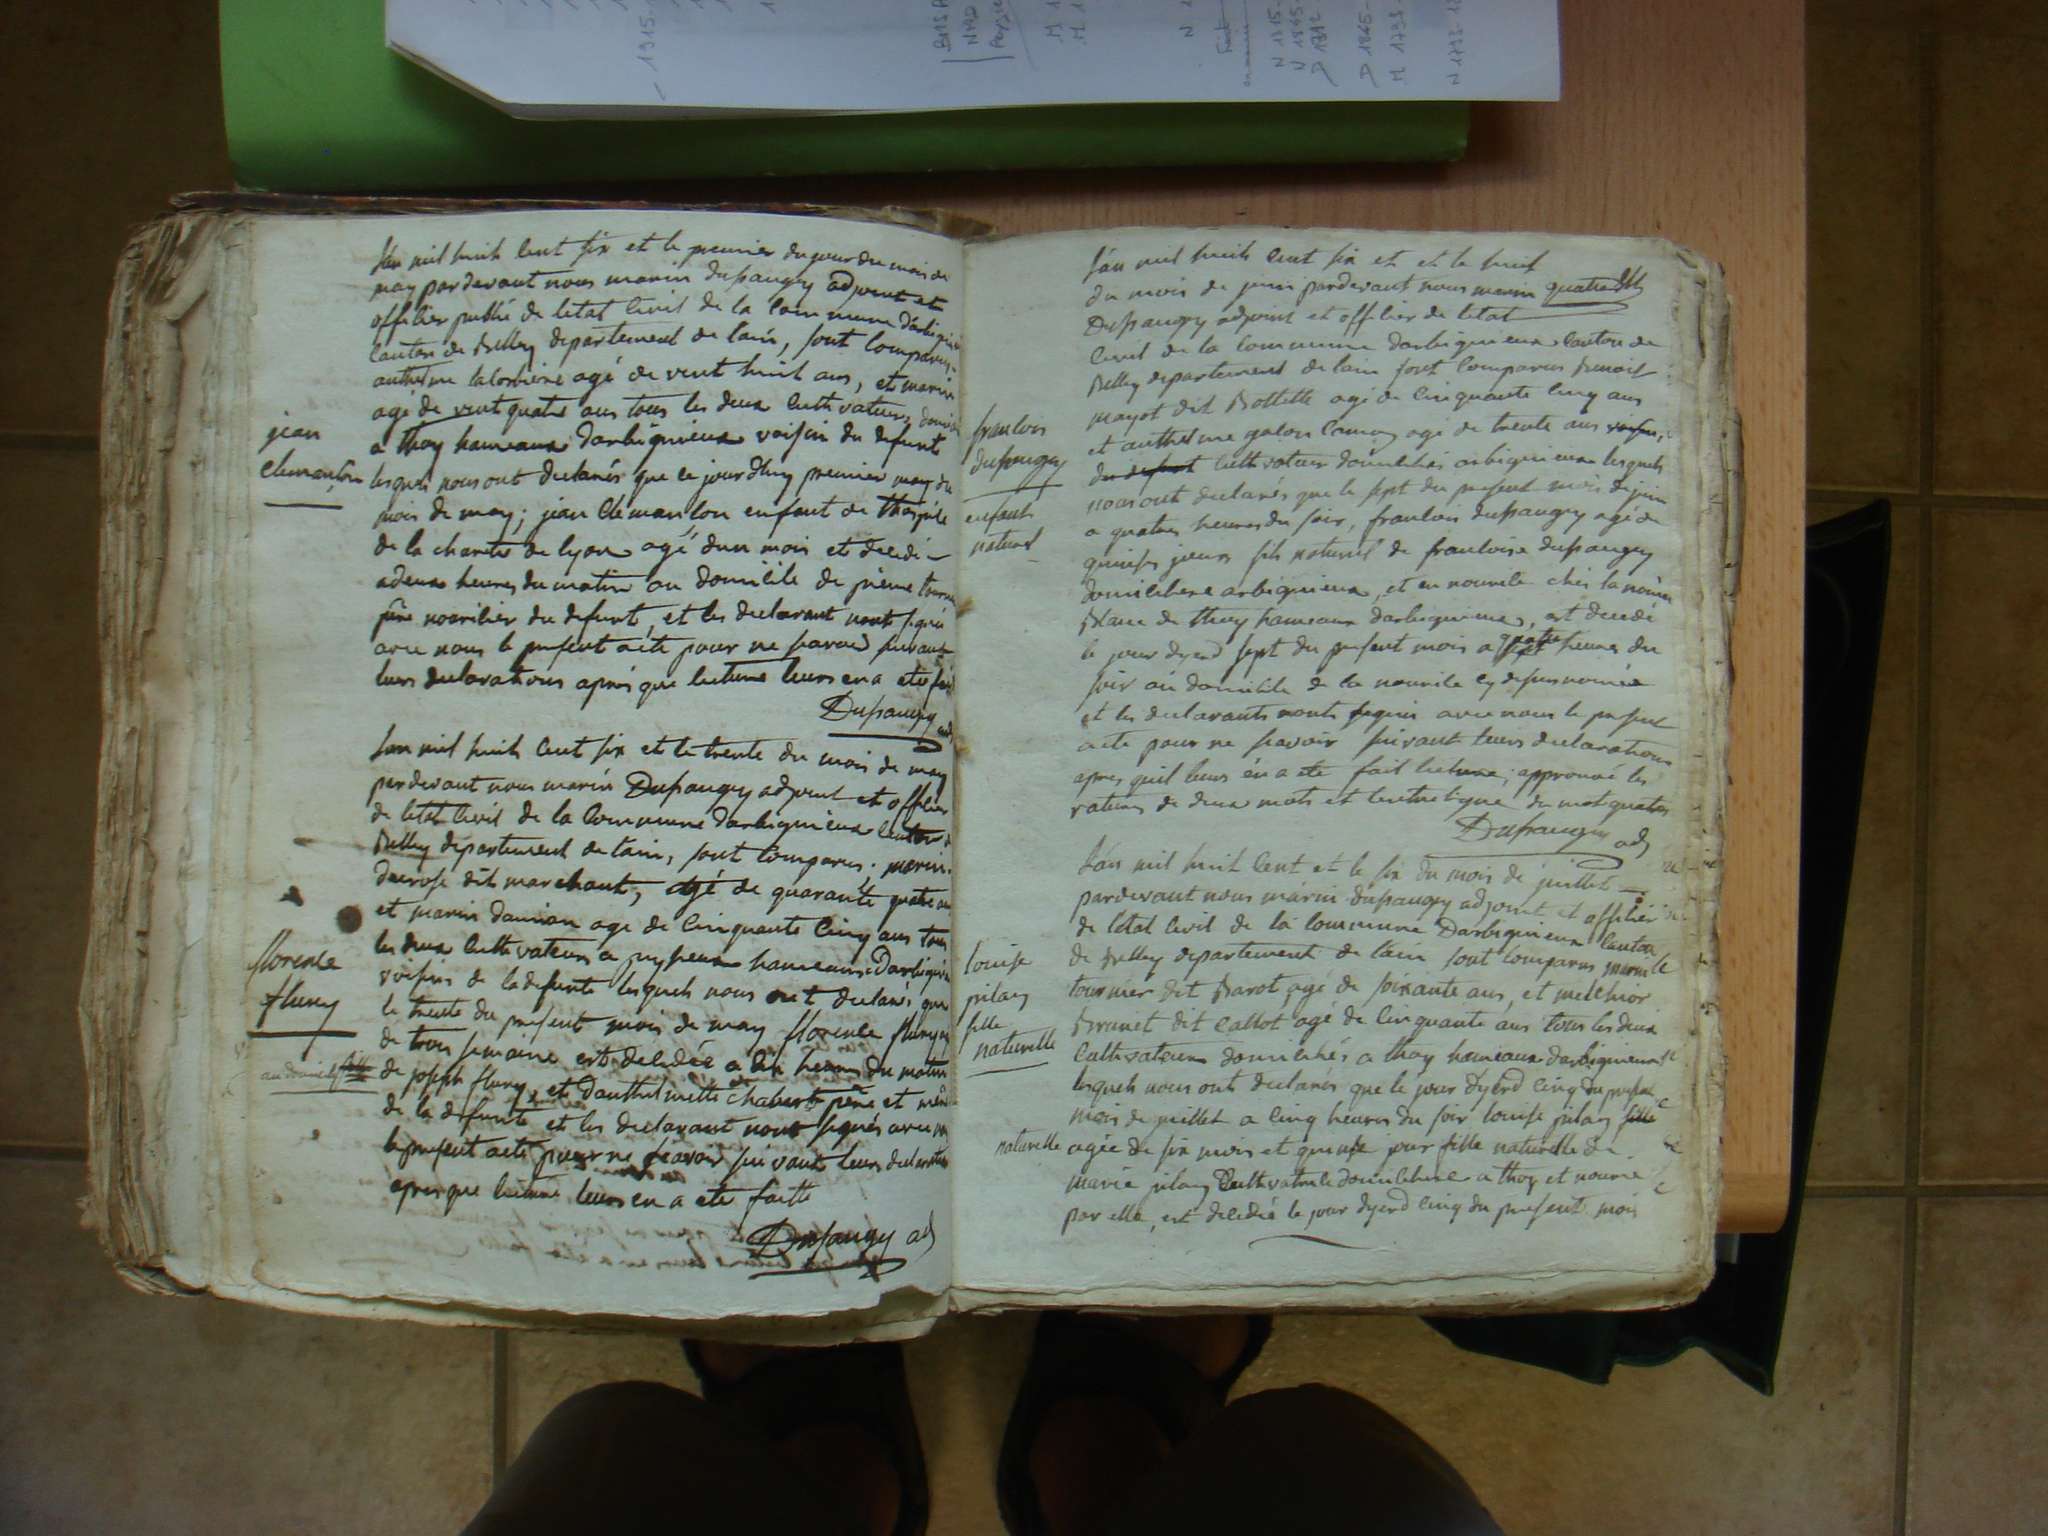 1915
N 1915
N 1865
D 1792
D 1865
M 1793
N 1793-12
l'an mil huit cent six et le premier du jour du mois de
may pardevant nous marin dupaugey adjoint et
officier public de letat civil de la commune darbignieu
canton de Belley departement de l'ain, sont comparus
anthelme lacorbiere agé de vent huit ans, et marin
agé de vent quatre ans tous les deux cultivateurs
a thoy hameaux darbignieux voisin du defunt
lesquels nous ont declarés que ce jourdhuy premier may du
mois de may; jean Clemanson enfant de thospile
de la charité de lyon agé dun mois et decedé
a deux heures du matin au domicile de pierre
père nourilier du defunt, et les declarant nont signé
avec nous le present acte pour ne savoir suivant
leurs declarations aprés que lecture leurs en a eté fait
Dupaugey adj
jean
Clemanson
l'an mil huit cent six et le trente du mois de may
pardevant nous marin Dupaugey adjoint et officier
de letat civil de la commune darbignieux canton de
Belley département de lain, sont comparus; marin
decrose dit marchant, agé de quarante quatre ans
et marin damian age de cinquante cinq ans tous
les deux cultivateurs a peyzieux hameaux Darbignieu
voisins de la defunte lesquels nous ont declarés que
le trente du present mois de may florence fleury
de trois semaine est decedée a dix heures du matin
de joseph fleury, et danthelmette chabert père et mère
de la defunte et les declarant nont signés avec nous
le present acte pour ne scavoir suivant leurs declaration
apres que lecture leurs en a eté faitte
Dupaugey adj
florence
fleury
au domicile
l'an mil huit cent six et et le huit
du mois de juin pardevant nous marin quatre
Dupaugey adjoint et officier de letat
civil de la commune darbignieux canton de
Belley departement de lain sont comparus Benoit
mayot dit Bottille agé de cinquante cinq ans
et anthelme galon agé de trente ans voisin,
du defunt cultivateur domiciliés arbignieux lesquels
nous ont declarés que le sept du present mois de juin
a quatre heures du soir, francois dupaugey agé de
quinse jours fils naturel de francoise dupaugey
domiciliere arbignieux, et en nourile chés la nomée
Blanc de thoy hameaux darbignieux, est decedé
le jour dyerd sept du present mois a quatre heures du
soir au domicile de la nourile cy desus nomée
et les declarants nonts signés avec nous le present
acte pour ne savoir suivant leurs declarations
apres quil leurs én a eté fait lecture; approuvé les
ratures de deux mots et du mot quatre
Dupaugey adj
francois
dupaugey
enfant
naturel
l'an mil huit cent et le six du mois de juillet
pardevant nous marin dupaugey adjoint et officier
de létat civil de la commune Darbignieux canton
de Belley departement de lain sont comparus marin
tournier dit Barot, agé de soixante ans, et melchior
Brunet dit Callot agé de cinquante ans tous les deux
cultivateurs domiciliés a thoy hameaux darbignieux
lesquels nous ont declarés que le jour dyerd cinq du present
mois de juillet a cinq heures du soir louise pilaz fille
agée de six mois et quinse jour fille naturelle de
marie pilaz cultivatrile domiciliere a thoy et nourie
par elle, est decedée le jour dyerd cinq du present mois
louise
pilaz
fille
naturelle
naturelle